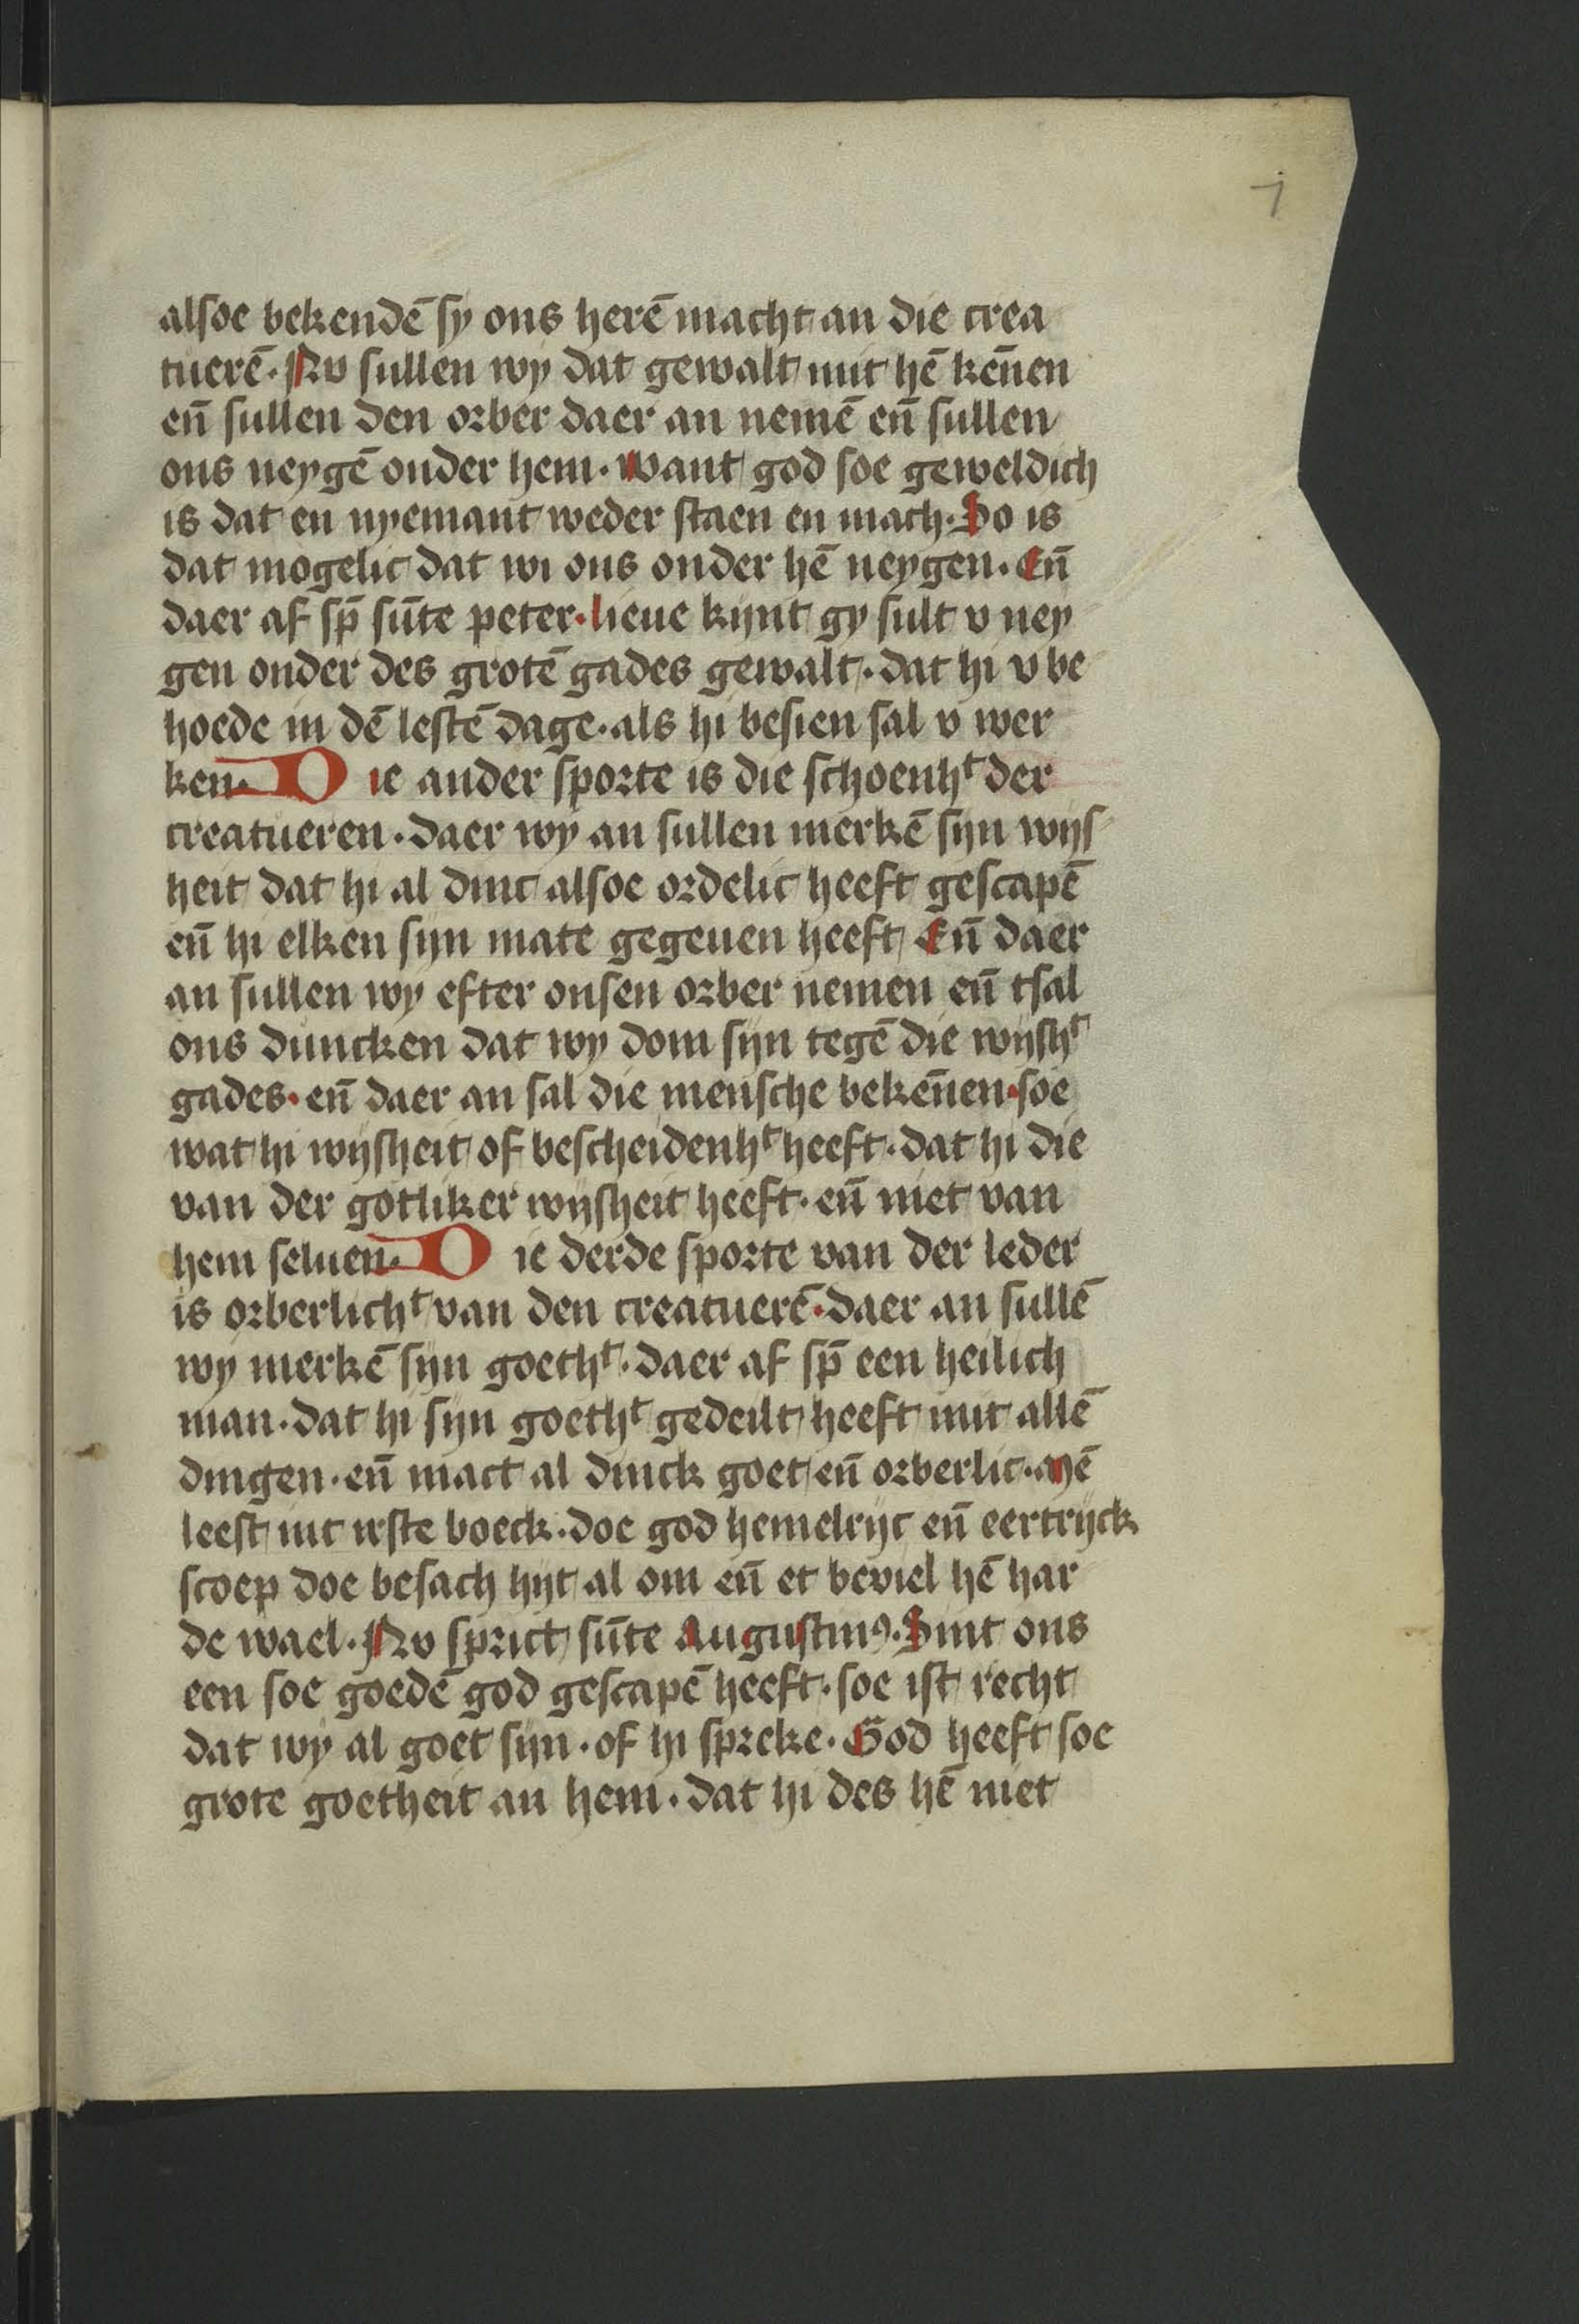 7
alsoe bekendē sy ons herē macht an die crea
tuerē. Nv sullen wy dat gewalt mit hē kēnen
en̄ sullen den orber daer an nemē en̄ sullen
ons neygē onder hem. want god soe geweldich
is dat en nyemant weder staen en mach. So is
dat mogelic dat wi ons onder hē neygen. En̄
daer af sp̄ sūte peter. lieue kijnt gy sult v ney
gen onder des grotē gades gewalt. dat hi v be
hoede in dē lestē dage. als hi besien sal v wer
ken. Die ander sporte is die schoenhᵗ der
creatueren. daer wy an sullen merkē sijn wijs
heit dat hi al dinc alsoe ordelic heeft gescapē
en̄ hi elken sijn mate gegeuen heeft En̄ daer
an sullen wy efter onsen orber nemen en̄ tsal
ons duncken dat wy dom sijn tegē die wijshᵗ
gades. en̄ daer an sal die mensche bekēnen. soe
wat hi wijsheit of bescheidenhᵗ heeft. dat hi die
van der gotliker wijsheit heeft. en̄ niet van
hem seluen. Die derde sporte van der leder
is orberlichᵗ van den creatuerē. daer an sullē
wy merkē sijn goethᵗ. daer af sp̄ een heilich
man. dat hi sijn goethᵗ gedeilt heeft mit allē
dingen. en̄ mact al dinck goet en̄ orberlic. Mē
leest int irste boeck. doe god hemelrijc en̄ eertrijck
scoep doe besach hijt al om en̄ et beviel hē har
de wael. Nv sprict sūte Augustinꝰ. Sint ons
een soe goedē god gescapē heeft. soe ist recht
dat wy al goet sijn. of hi spreke. God heeft soe
grote goetheit an hem. dat hi des hē niet